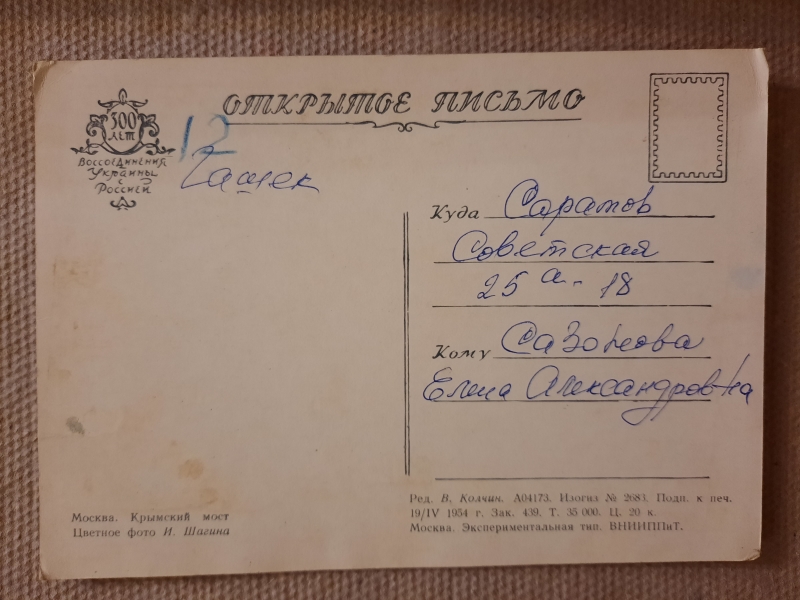 ОТКРЫТОЕ ПИСЬМО
300
ЛЕТ
ВОССОЕДИНЕНИЯ
УКРАИНЫ
с
РОССИЕЙ
12
Куда Саратов
Советская
25а-18
Кому Сазонова
Елена Александровна
Москва. Крымский мост
Цветное фото И. Шагина
Ред. В. Колчин. А04173. Изогиз № 2683. Подп. к печ.
19/IV 1954 г. Зак. 439. Т. 35 000. Ц. 20 к.
Москва. Экспериментальная тип. ВНИИППиТ.